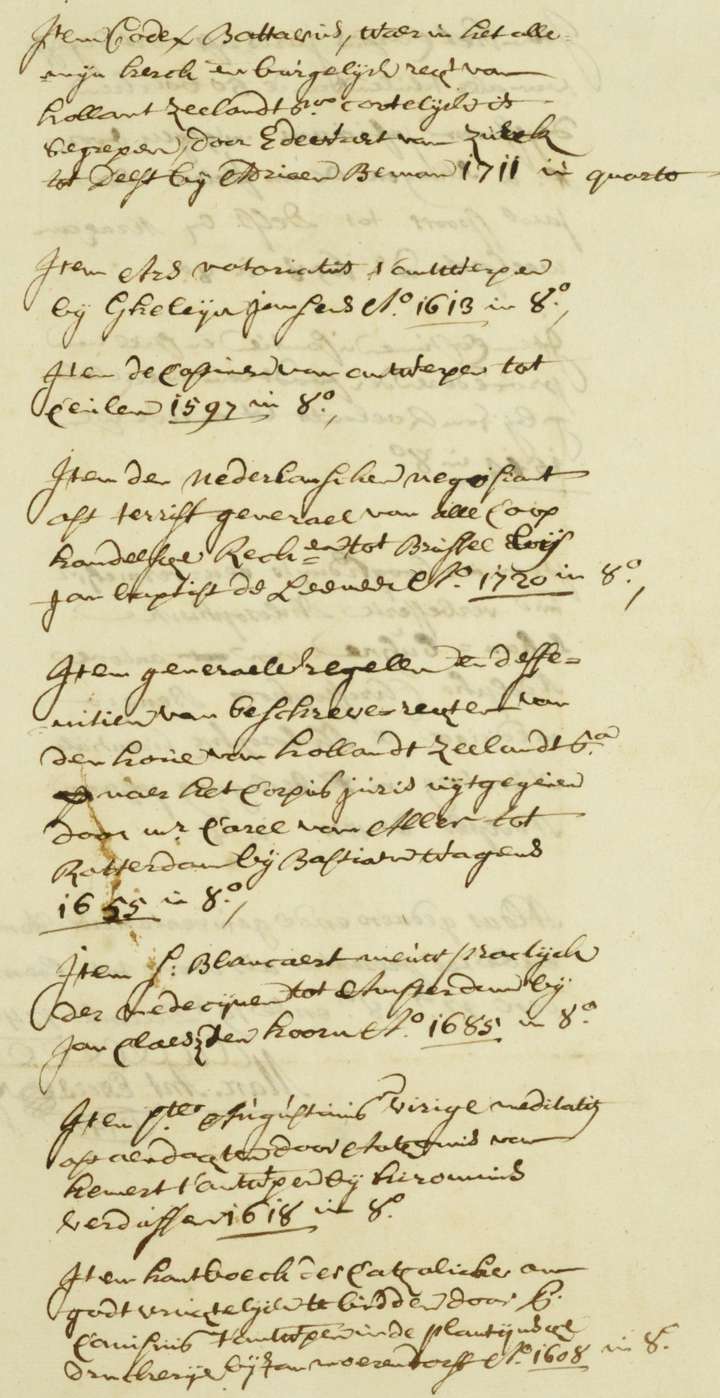 Item Codex Battavus, waer in het alle=
mijn kerck en burgelijck regt van
hollant zeelandt &a cortelijck is
begrepen, door Edewaert van Zurck
tot Delft bij Adriaen Beman 1711 in quarto
Item Ars notoriatus t'antwerpen
bij Gheleyn Janssens Ao. 1613 in 8o,
Item de Costuimen van antwerpen tot
Ceulen 1597 in 8o,
Item den nederlanschen negossiant
oft terriff generael van alle Coop
handelsche Rech=en tot Brussel bij
Jan baptist de Leeneer Ao. 1720 in 8o,
Item generaele regelen en deffe=
nitien van beschreve regten van
den hove van hollandt zeelandt &a
naer het Corpus juris uijtgegeven
door mr Carel van Aller tot
Rotterdam bij Bastiaen Wagens
1655 in 8o,
Item S: Blancaert nieuw practijck
der medecijnen tot Amsterdam bij
Jan Claesz ten hoorn Ao. 1685 in 8o
Item Augustinus virige meditatie
oft aendagten door Antonius van
hemert t'antwerpen bij hieronimus
verdussen 1618 in 8o
Item hantboeck der Catolicken om
godtvrugtelijck te bidden door P.
Canisius t'antwerpen in de plantijnsche
druckerije bij Jan moerendorff Ao. 1608 in 8.